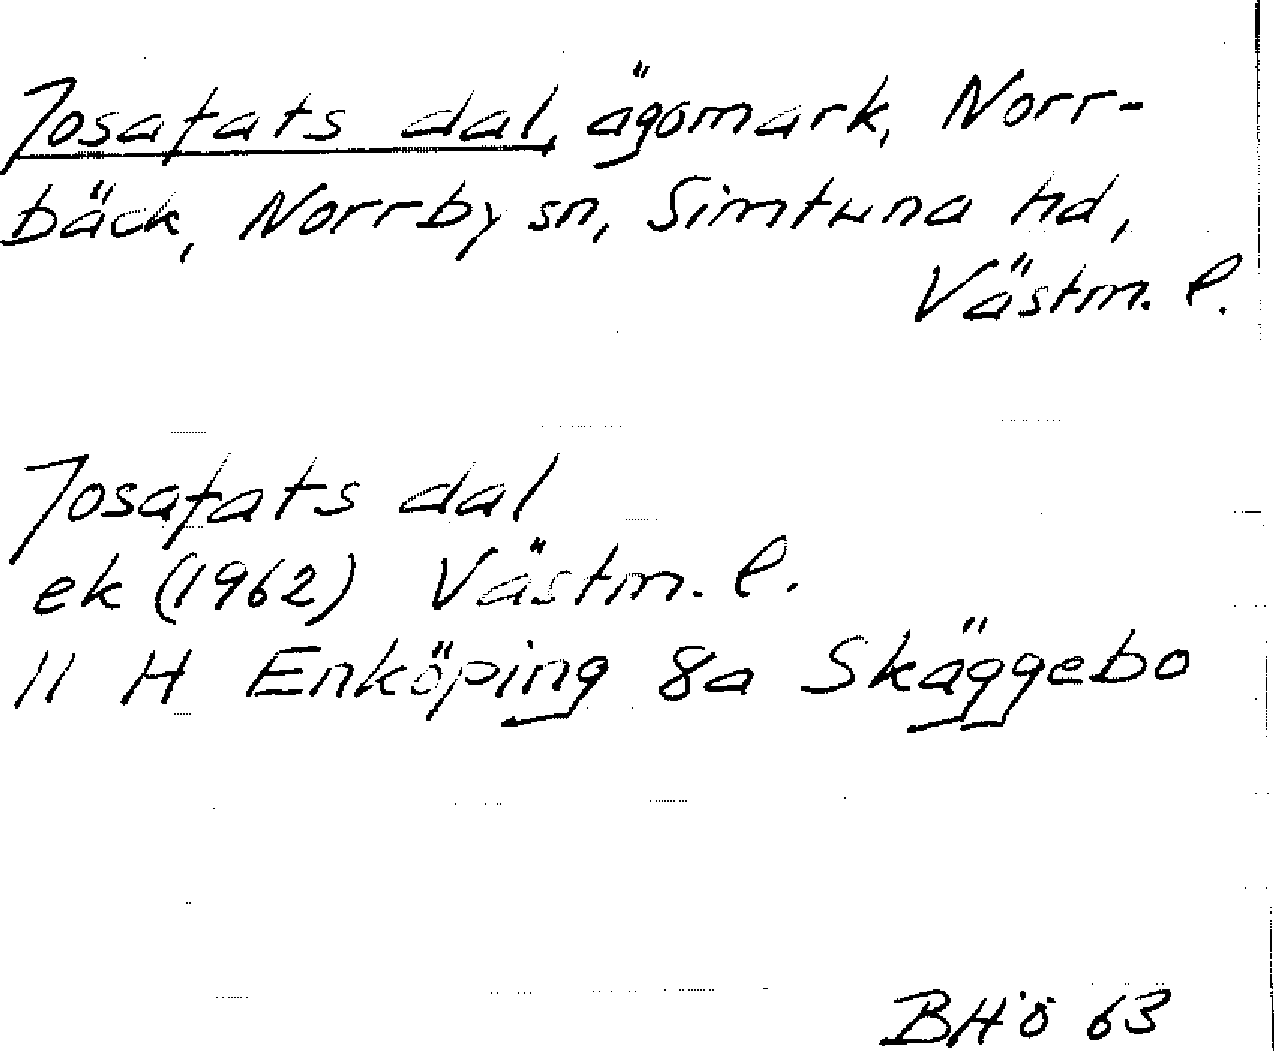 Josafats dal, ägomark, Norr-
bäck, Norrby sn, Simtuna hd,
Västm. l.
Josafats dal
ek (1962) Västm. l.
11 H Enköping 8a Skäggebo
BHö 63